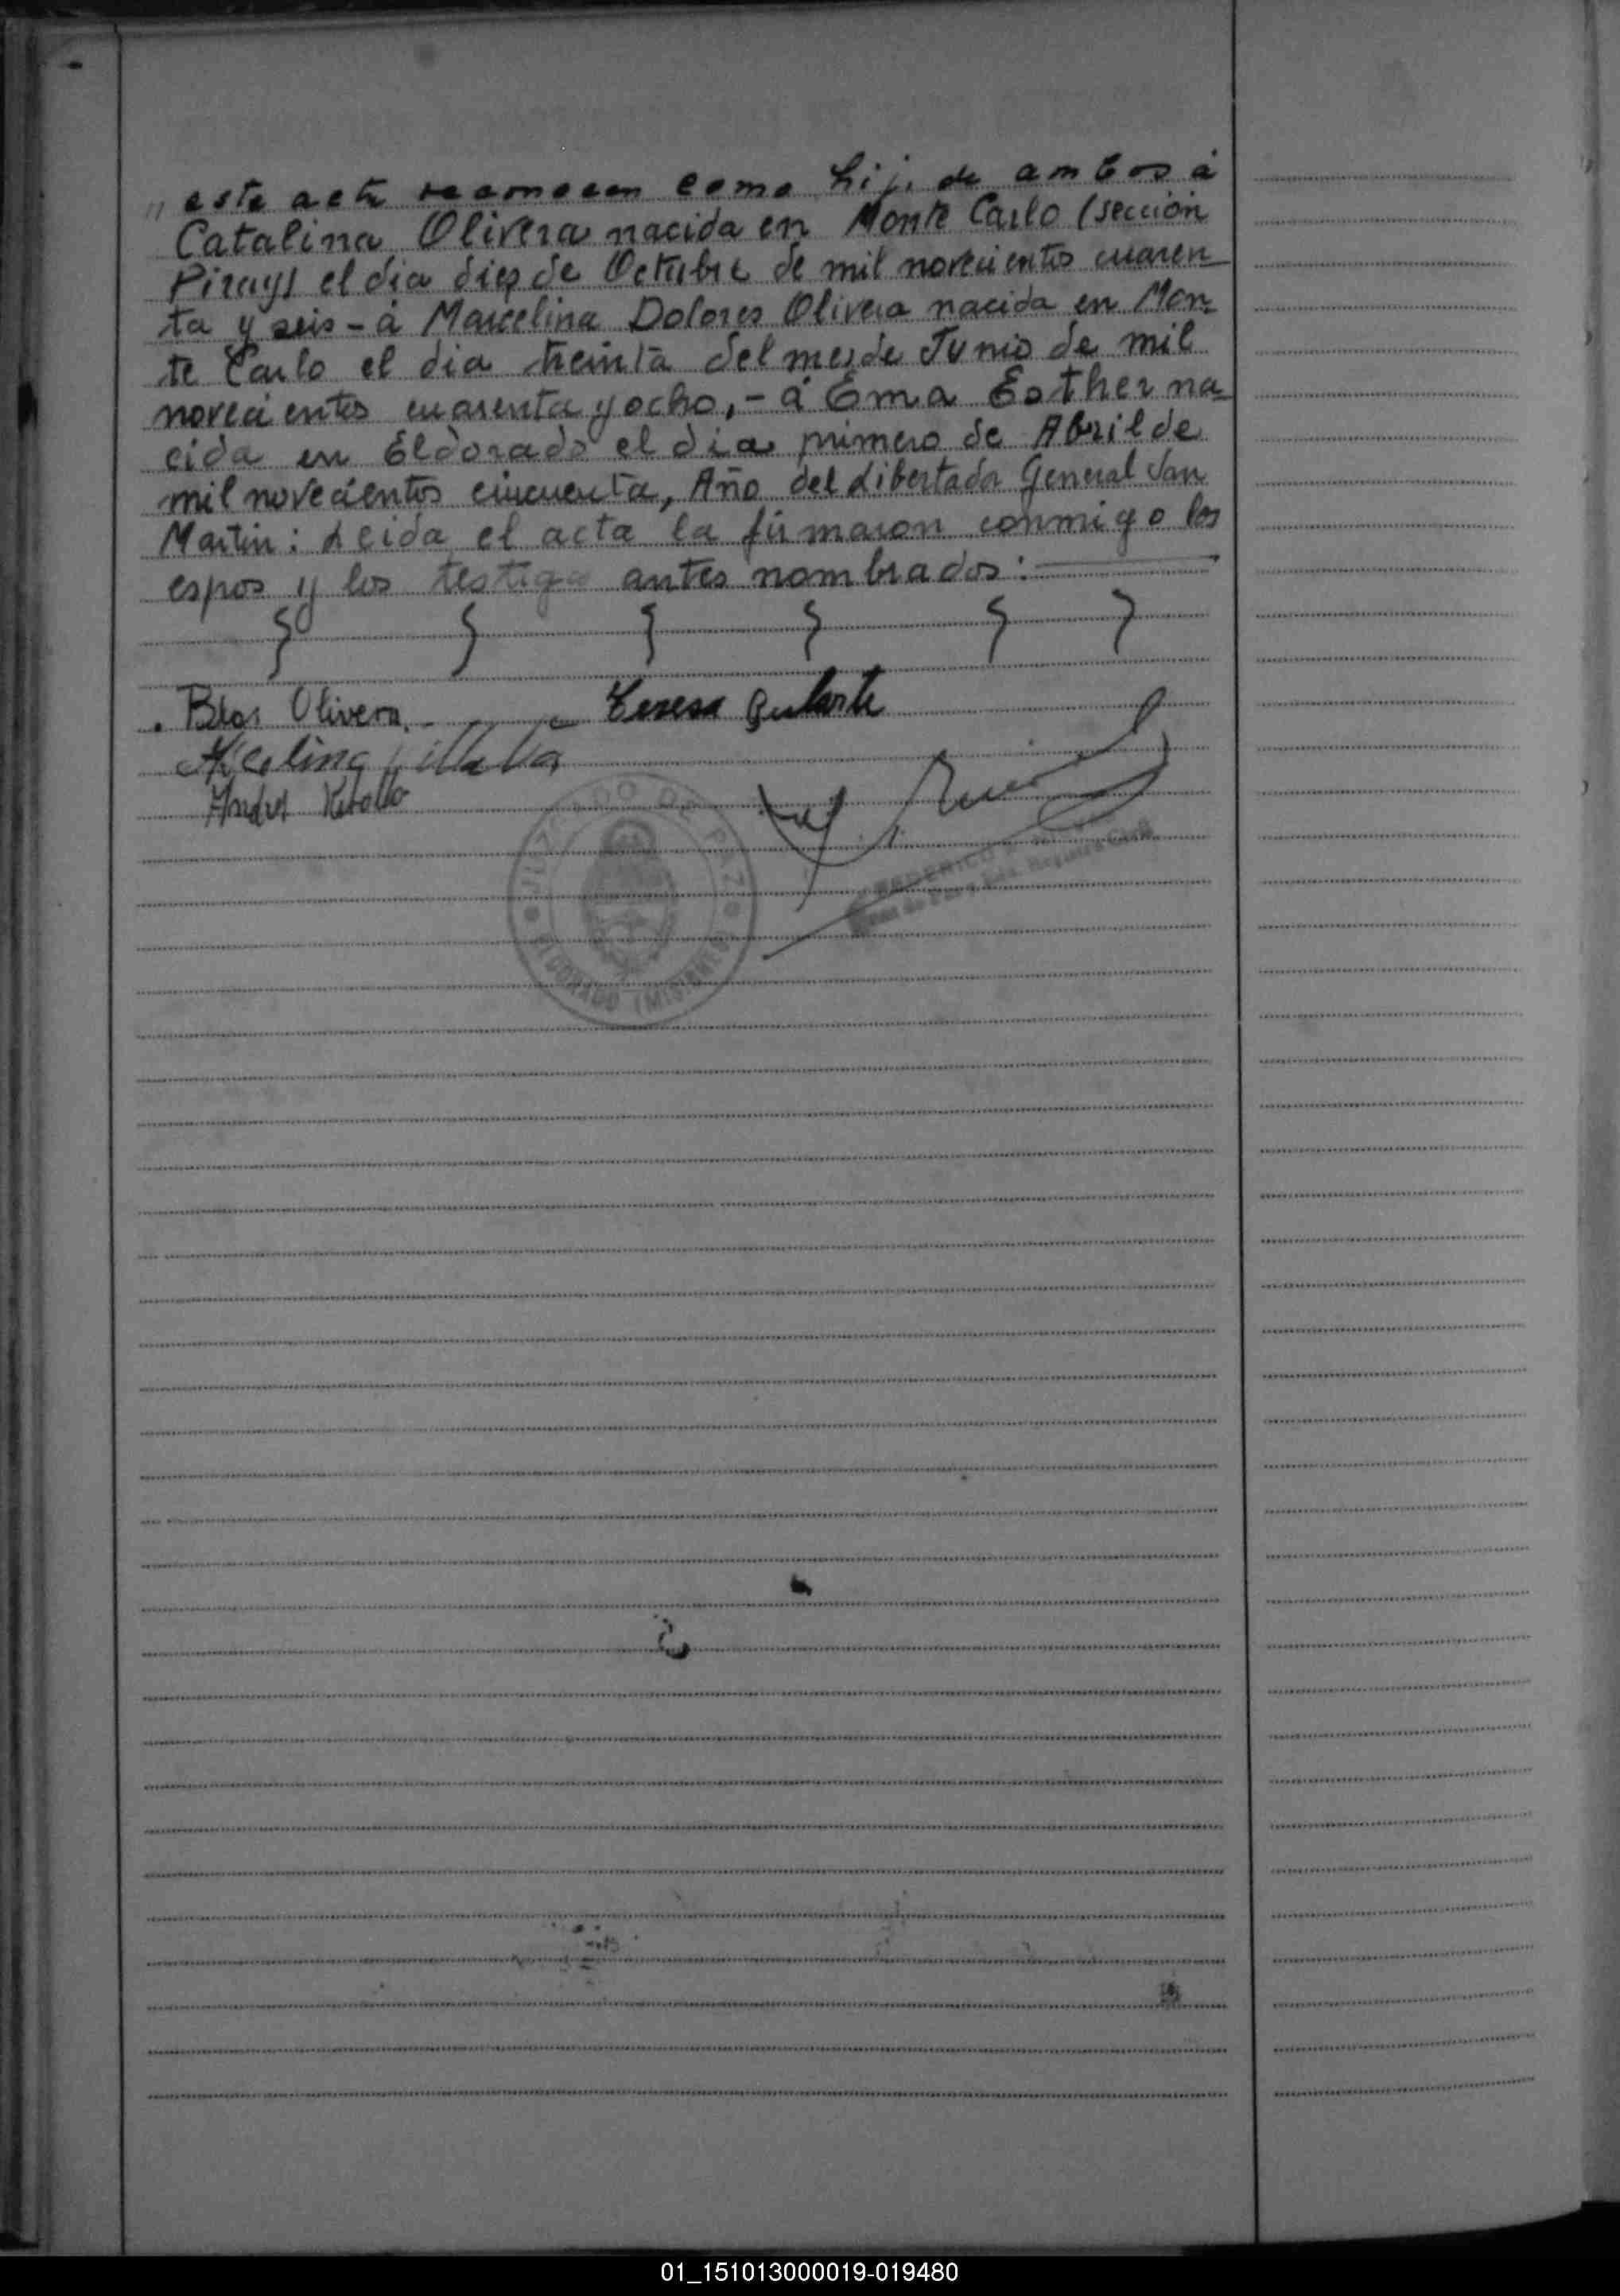 " este acto reconocen como hij. de ambos á
Catalina Olivera nacida en Monte Carlo (sección
Piray) el dia diez de Octubre de mil novecientos cuaren
ta y seis - á Marcelina Dolores Olivera nacida en Mon
te Carlo el dia treinta del mes de Junio de mil
novecientos cuarenta y ocho, - á Ema Esther na
cida en Eldorado el dia primero de Abril de
mil novecientos cincuenta, Año del Libertador General San
Martin: Leida el acta la firmaron conmigo los
espos y los testigos antes nombrados:
Blas Olivera Teresa
Andres
JUZGADO DE PAZ
ELDORADO (MISIONES)
FEDERICO
Juez de Paz Registro Civil
01_151013000019-019480